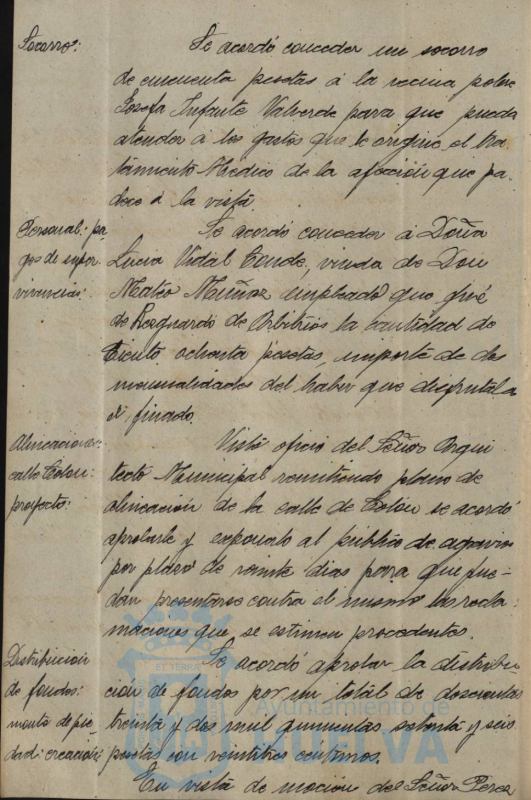 Socorro:
Se acordó conceder un socorro
de cincuenta pesetas á la vecina pobre
Josefa Infante Valverde para que pueda
atender á los gastos que le origine el tra-
tamiento Medico de la afección que pa-
dece á la vista
Personal: pa-
gos de super-
vivencias:
Se acordó conceder á Doña
Lucia Vidal Conde, viuda de Don
Mateo Muñoz empleado que fué
de Resguardo de Arbitrios la cantidad de
Ciento ochenta pesetas importe de dos
mensualidades del haber que disfrutaba
el finado.
Alineaciones:
calle Colon:
proyecto:
Visto oficio del Señor Arqui
tecto Municipal remitiendo plano de
alineación de la calle de Colón se acordó
aprobarle y exponerlo al público de agravios
por plazo de veinte dias para que pue-
dan presentarse contra el mismo las recla-
maciones que se estimen procedentes.
Distribución
de fondos:
monte de pie-
dad: creación:
Se acordó aprobar la distribu-
ción de fondos por un total de doscientas
treinta y dos mil quinientas setenta y seis
pesetas con veintitres centimos.
En vista de moción del Señor Perez
ET TERRÆ
Ayuntamiento de
HUELVA